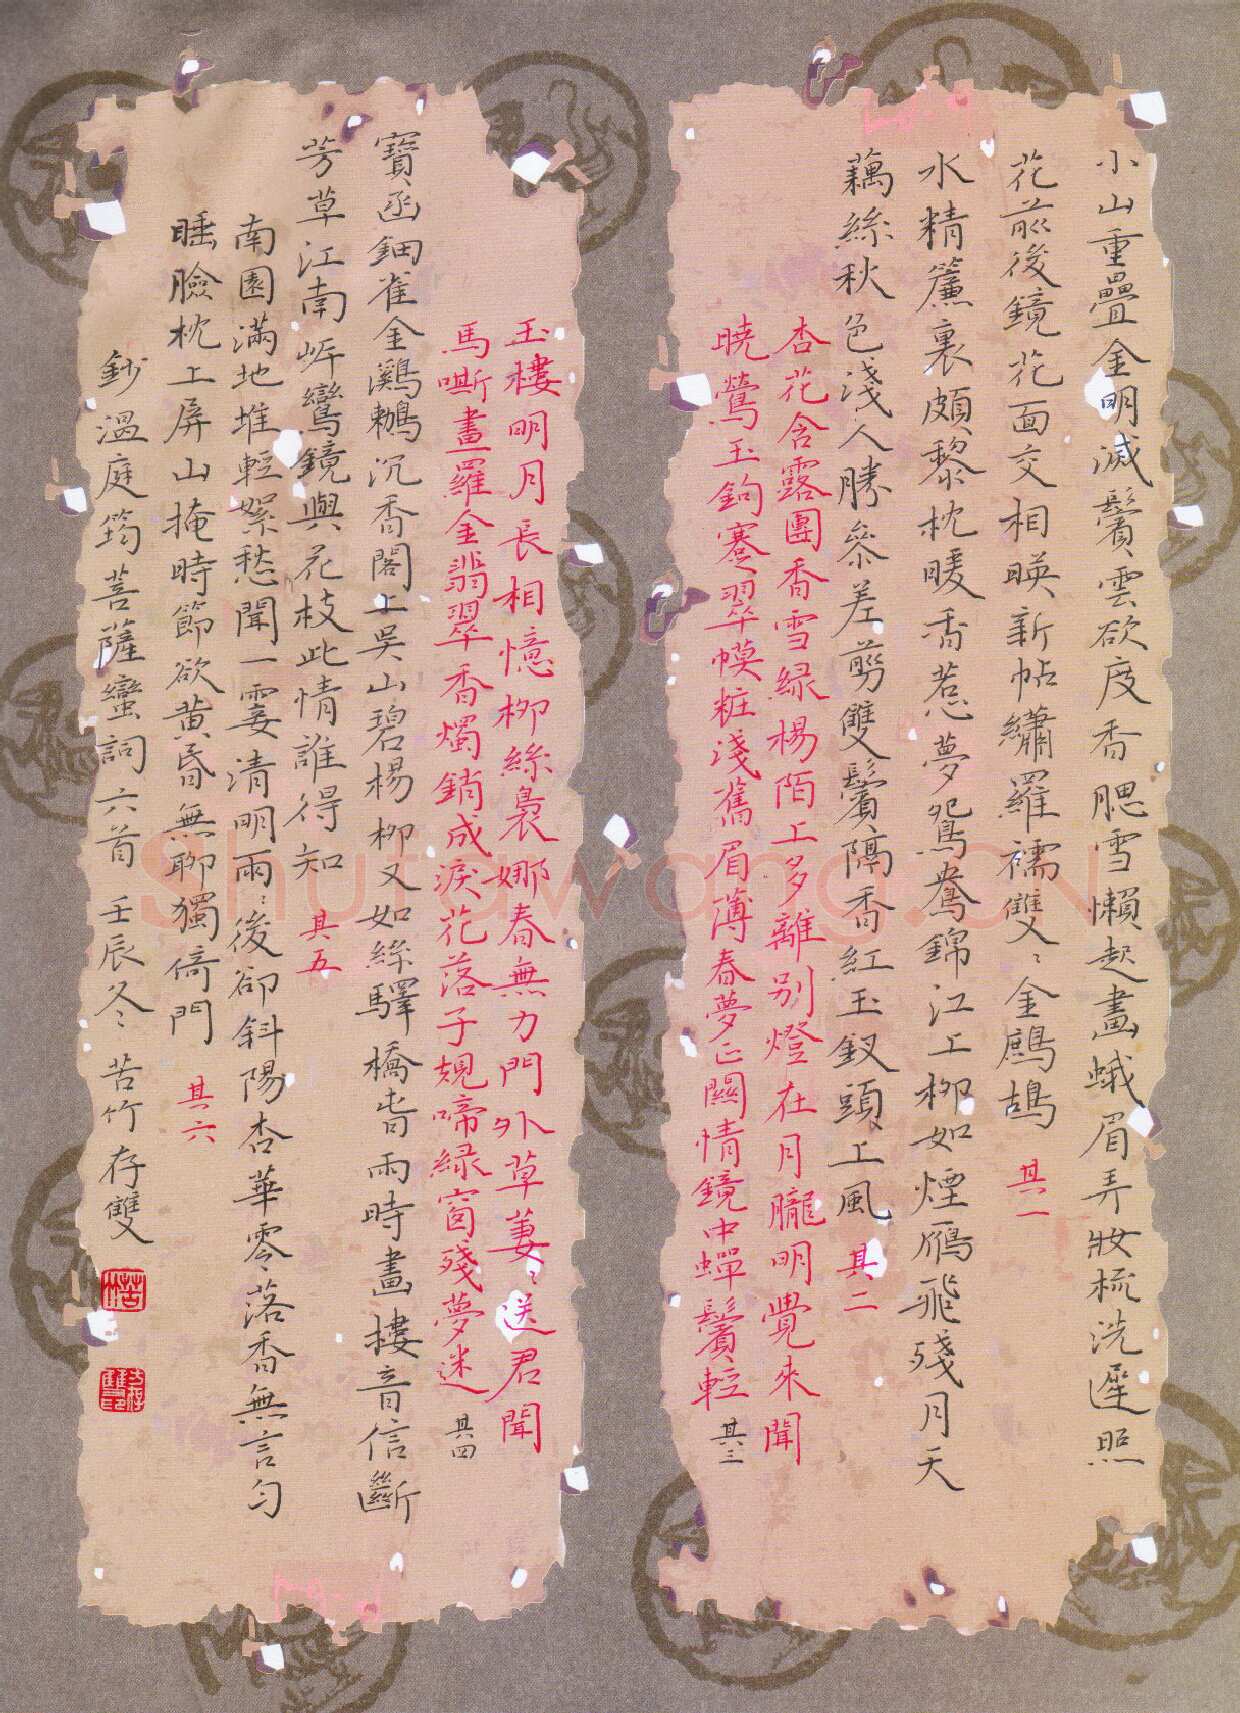 小山重疊金明滅鬢雲欲度香腮雪懶起畫蛾眉弄妝梳洗遲照
花前後鏡花面交相映新帖繡羅襦雙〻金鷓鴣 其一
水精簾裏頗黎枕暖香惹夢鴛鴦錦江上柳如煙雁飛殘月天
藕絲秋色淺人勝參差剪雙鬢隔香紅玉釵頭上風 其二
杏花含露團香雪綠楊陌上多離別燈在月朧明覺來聞
曉鶯玉鉤褰翠幙粧淺舊眉薄春夢正關情鏡中蟬鬢輕 其三
玉樓明月長相憶柳絲裊娜春無力門外草萋〻送君聞
馬嘶畫羅金翡翠香燭銷成淚花落子規啼綠窗殘夢迷 其四
寶函鈿雀金鸂鶒沉香閣上吳山碧楊柳又如絲驛橋春雨時畫樓音信斷
芳草江南岸鸞鏡與花枝此情誰得知 其五
南園滿地堆輕絮愁聞一霎清明雨〻後卻斜陽杏華零落香無言勻
睡臉枕上屏山掩時節欲黃昏無聊獨倚門 其六
鈔溫庭筠菩薩蠻詞六首 壬辰冬〻苦竹存雙
Shufawang.CN